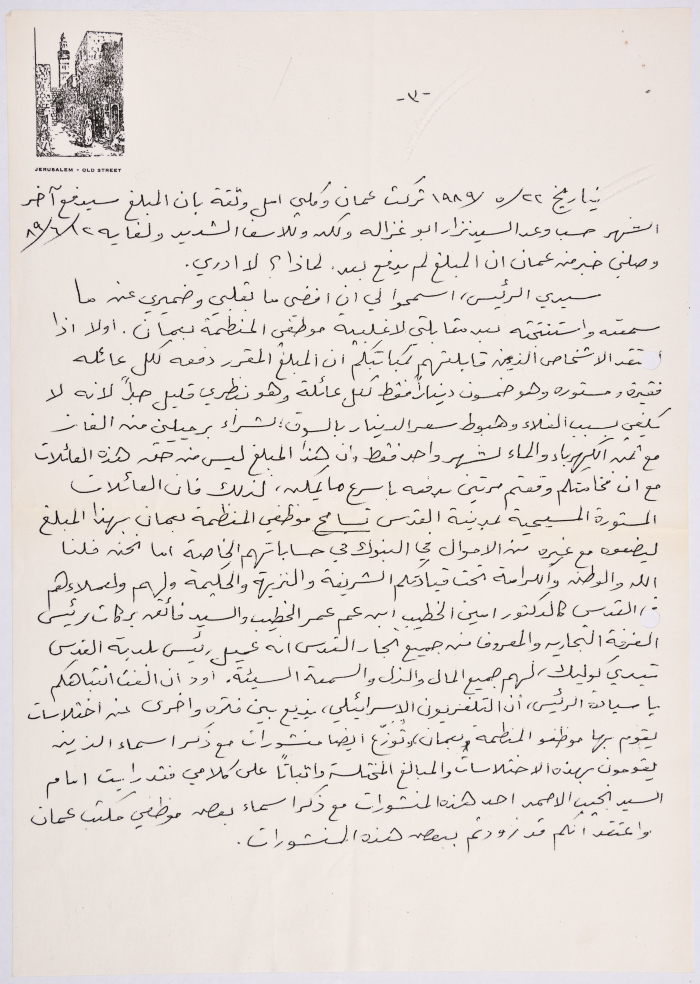 -٣-
JERUSALEM - OLD STREET
بتاريخ ٢٢/٥/١٩٨٩ تركت عمان وكلي امل وثقة بان المبلغ سيدفع آخر
الشهر حسب وعد السيد نزار ابو غزاله ولكن وللاسف الشديد ولغاية ٢/٦/٨٩
وصلني خبر من عمان ان المبلغ لم يدفع بعد. لماذا؟ لا ادري.
سيدي الرئيس، اسمحوا لي ان افضي ما بقلبي وضميري عن ما
سمعته واستنتجته بعد مقابلتي لاغلبية موظفي المنظمة بعمان. اولا اذا
اعتقد الاشخاص الذين قابلتهم بمكاتبكم ان المبلغ المقرر دفعه لكل عائله
فقيرة ومستوره وهو خمسون ديناراً فقط لكل عائلة وهو بنظري قليل جداً لانه لا
يكفي بسبب الغلاء وهبوط سعر الدينار بالسوق لشراء برميلين من الغاز
مع ثمن الكهرباء والماء لشهر واحد فقط، ان هذا المبلغ ليس من حق هذه العائلات
مع ان فخامتكم وقعتم مرتين بدفعه باسرع ما يمكن، لذلك فان العائلات
المستورة المسيحية لمدينة القدس تسامح موظفي المنظمة بعمان بهذا المبلغ
ليضعوه مع غيره من الاموال في البنوك في حساباتهم الخاصة اما نحن فلنا
الله والوطن والكرامة تحت قيادتكم الشريفة والنزيهة والحكيمة ولهم ولعملاءهم
في القدس كالدكتور امين الخطيب ابن عم عمر الخطيب والسيد فائق بركات رئيس
الغرفة التجاريه والمعروف من جميع تجار القدس انه عميل رئيس بلدية القدس
تيدي كوليك، لهم جميع المال والذل والسمعة السيئة. اود ان الفت انتباهكم
يا سيادة الرئيس، أن التلفزيون الاسرائيلي، يذيع بين فترة واخرى عن اختلاسات
يقوم بها موظفو المنظمة بعمان، وتُوزّع ايضا منشورات مع ذكر اسماء الذين
يقومون بهذه الاختلاسات والمبالغ المختلسة واثباتاً على كلامي فقد رايت امام
السيد نجيب الاحمد احد هذه المنشورات مع ذكر اسماء بعض موظفي مكتب عمان
واعتقد انكم قد زودتم ببعض هذه المنشورات.